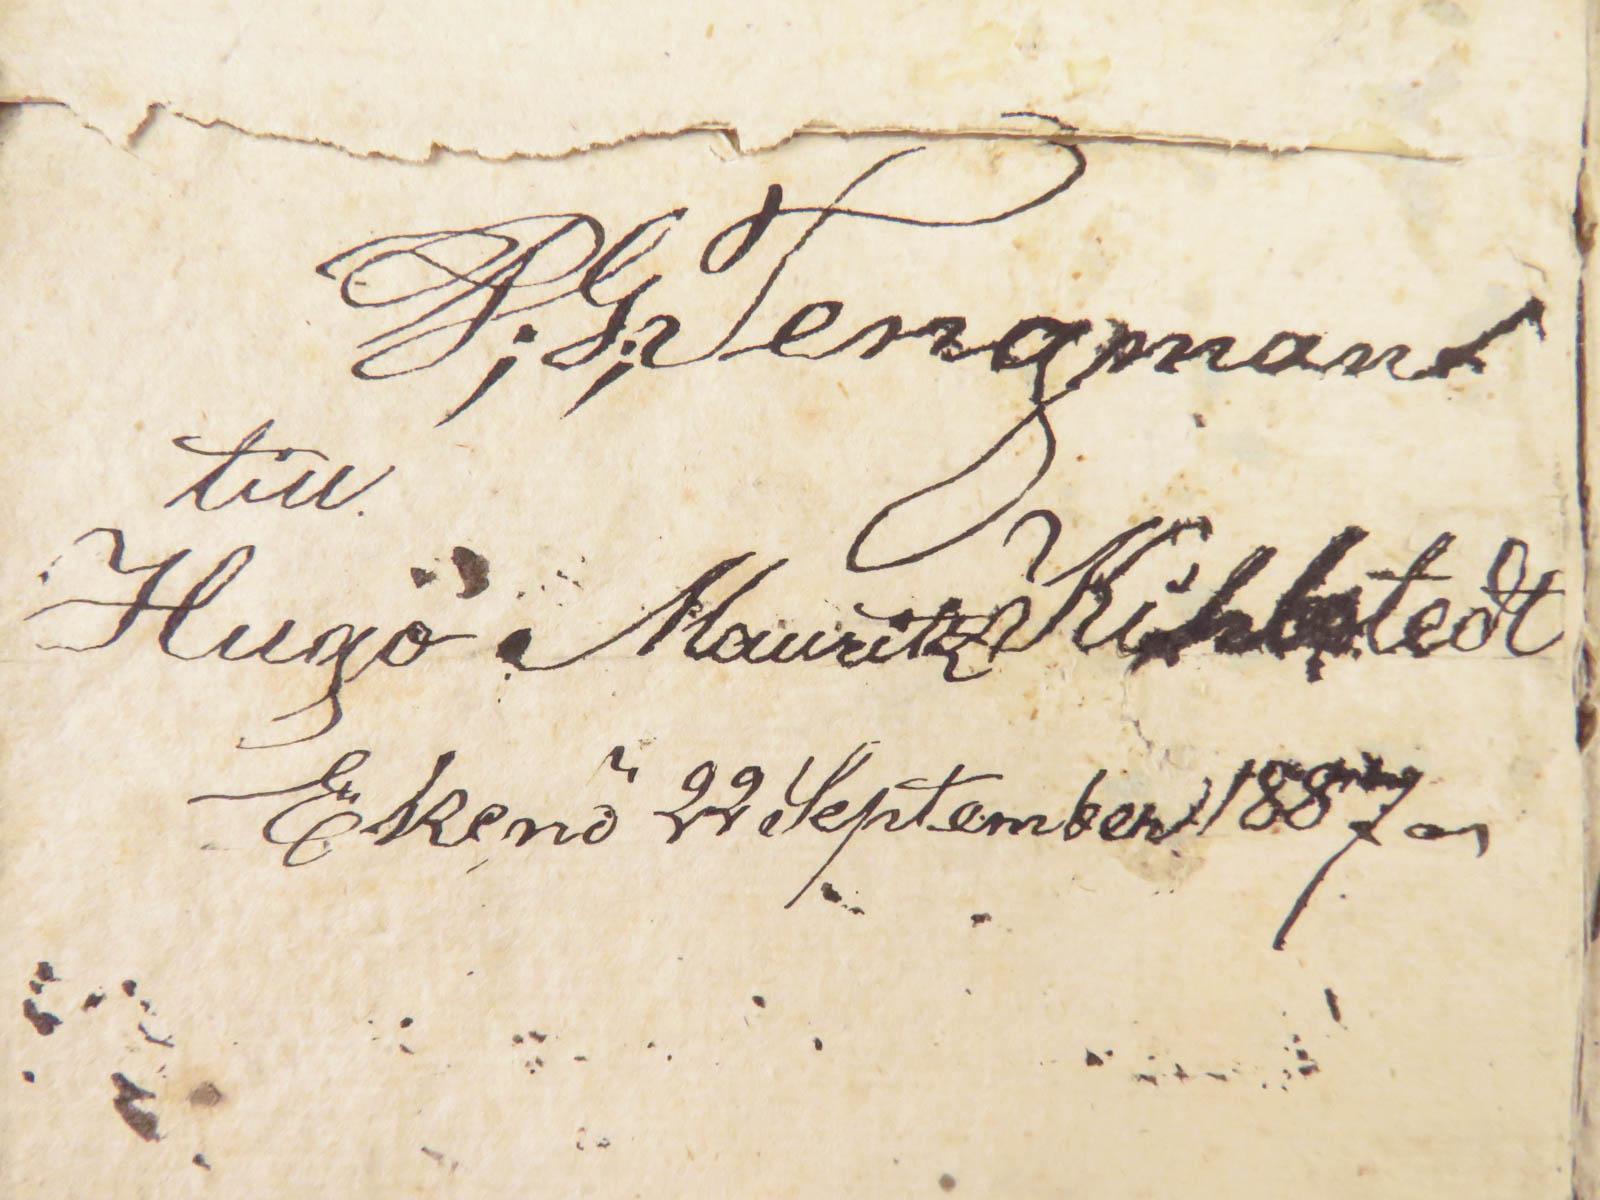 P. G. Tengmant
till
Hugo Mauritz Kihlstedt
Ekenö 22 September 1887